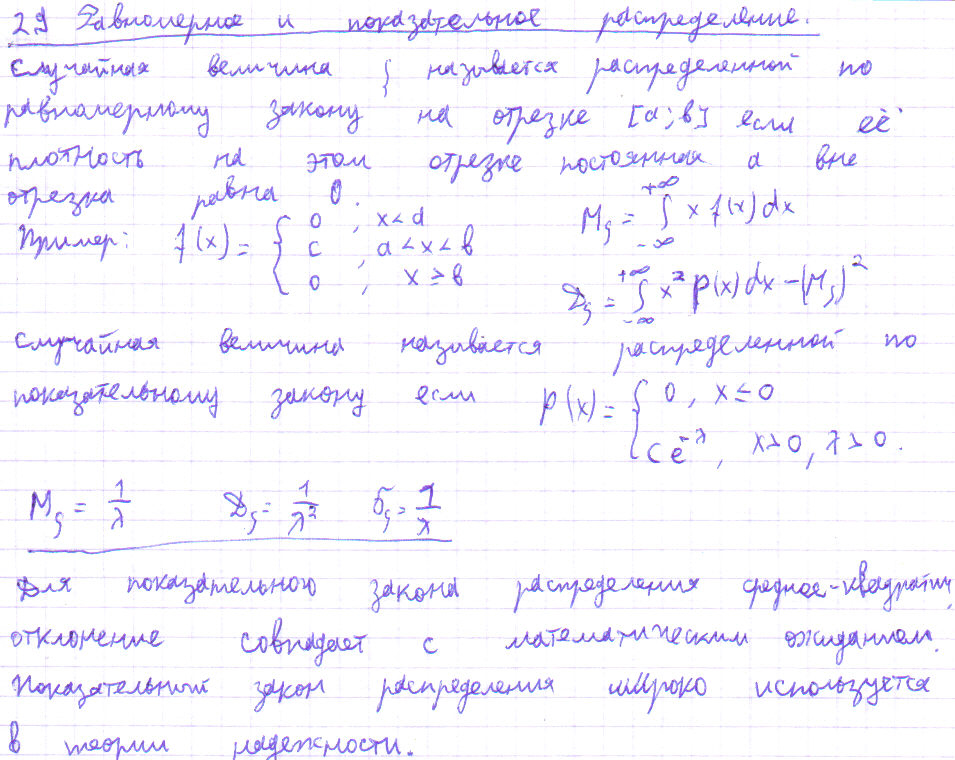 29 Равномерное и показательное распределение.
Случайная величина ξ называется распределенной по
равномерному закону на отрезке [a;b] если её
плотность на этом отрезке постоянная а вне
отрезка равна 0.
Пример: f(x) = { 0, x<a
c, a<x<b
0, x≥b
Mξ = ∫_{-∞}^{+∞} x f(x)dx
Dξ = ∫_{-∞}^{+∞} x² p(x)dx-(Mξ)²
Случайная величина называется распределенной по
показательному закону если p(x)= { 0, x≤0
c e^{-λ}, x>0, λ>0.
Mξ = 1/λ Dξ = 1/λ² σξ = 1/λ
Для показательного закона распределения среднее-квадратич.
отклонение совпадает с математическим ожиданием.
Показательный закон распределения широко используется
в теории надежности.